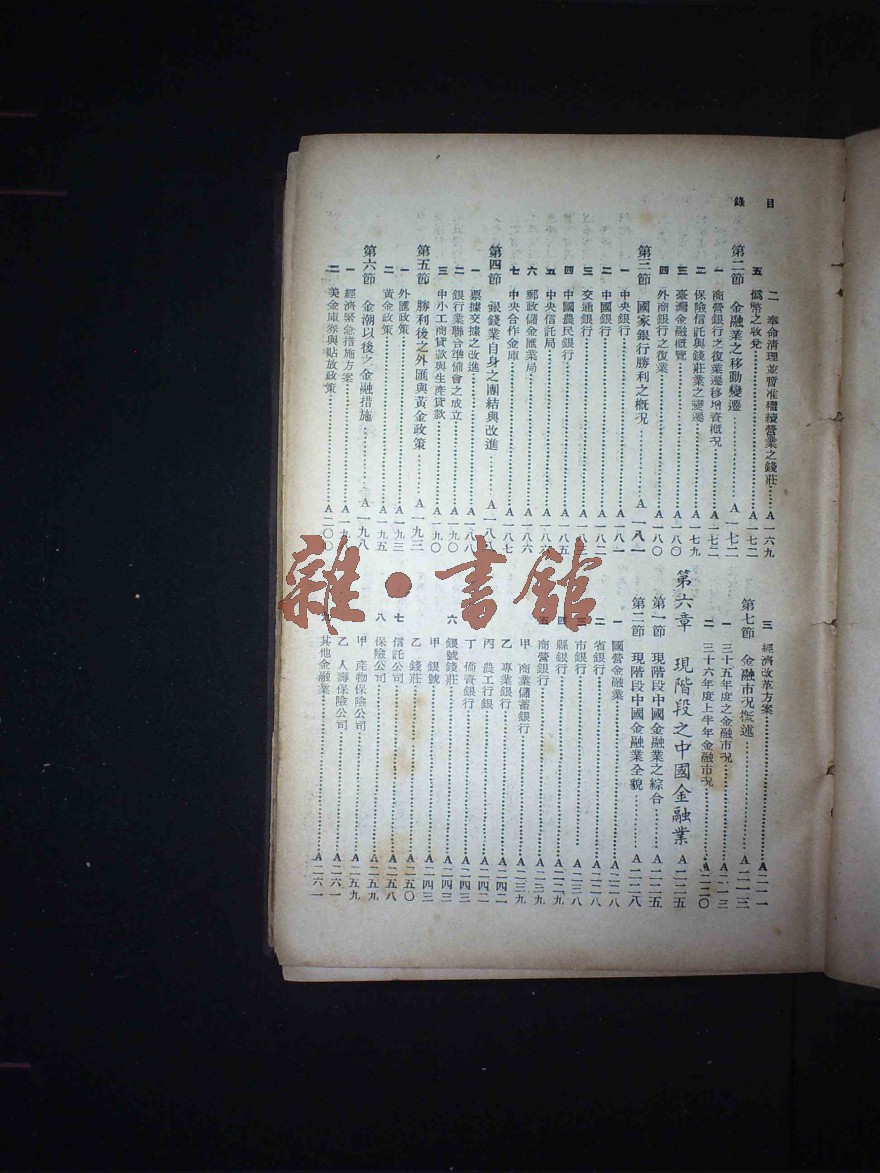 目錄
二 奉命清理並暫准繼續營業之錢莊……A一六九
五 僞幣之收兌……A一七二
第二節 金融業之移動變遷……A一七二
一 商營銀行之復業遷移增資概況……A一七二
二 保險信託與錢莊業之變遷……A一七九
三 臺灣金融概覽……A一八〇
四 外商銀行之復業……A一八〇
第三節 國家銀行勝利之概況……A一八一
一 中央銀行……A一八一
二 中國銀行……A一八二
三 交通銀行……A一八三
四 中國農民銀行……A一八五
五 中央信託局……A一八六
六 郵政儲金匯業局……A一八六
七 中央合作金庫……A一八七
第四節 銀錢業自身之團結與改進……A一八八
一 票據交換之改進……A一八八
二 銀行業聯合準備會之成立……A一九〇
三 中小工商貸款與生產貸款……A一九〇
第五節 勝利後之外匯與黃金政策……A一九三
一 外匯政策……A一九三
二 黃金政策……A一九五
第六節 金潮以後之金融措施……A一九八
一 經濟緊急措施方案……A一九八
二 美金庫券與貼放政策……A二〇〇
三 經濟改革方案……A二一一
第七節 金融市況概述……A二一三
一 三十五年度之金融市況……A二一三
二 三十六年度上半年金融市況……A二二〇
第六章 現階段之中國金融業 A二二五
第一節 現階段中國金融業之綜合……A二二五
第二節 現階段中國金融業全貌……A二二八
一 國營金融業……A二二八
二 省銀行……A二二八
三 市銀行……A二三八
四 縣銀行……A二二九
五 商營銀行……A二三九
甲 商業儲蓄銀行……A二三九
乙 專業銀行……A二四二
丙 農工行銀……A二四二
丁 僑資銀行……A二四三
六 銀號錢莊……A二四三
甲 銀號……A二四三
乙 錢莊……A二五〇
七 信託公司……A二五八
八 保險公司……A二五九
甲 產物保險公司……A二五九
乙 人壽保險公司……A二六一
其他金融業……A二六一
雜·書館